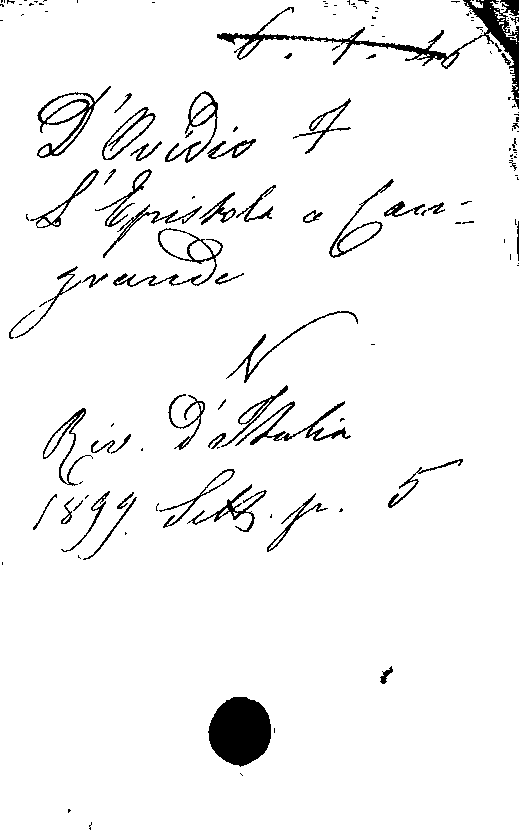 6. 1. 26
D'Ovidio F
L'Epistola a Can=
grande
N
Riv. d'Italia
1899. Sett. p. 5